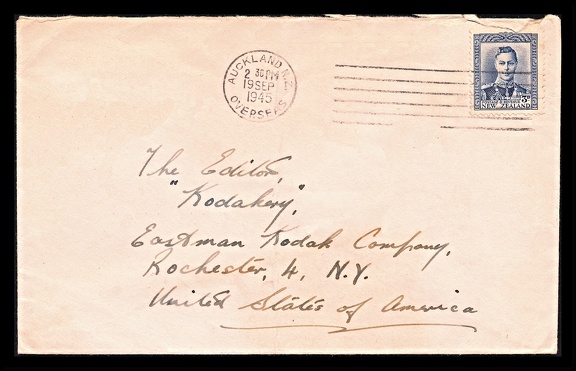 AUCKLAND N.Z.
2 30 PM
19 SEP
1945
OVERSEAS
NEW ZEALAND
The Editor,
"Kodakery",
Eastman Kodak Company,
Rochester, 4, N.Y.
United States of America